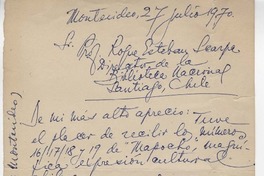 Montevideo, 27 julio 1970.
Sr. Prof. Roque Esteban Scarpa
Director de la
Biblioteca Nacional
Santiago, Chile
De mi más alto aprecio: Tuve
el placer de recibir los números
16/17/18 y 19 de Mapocho, magní-
fica expresión cultural
Montevideo)